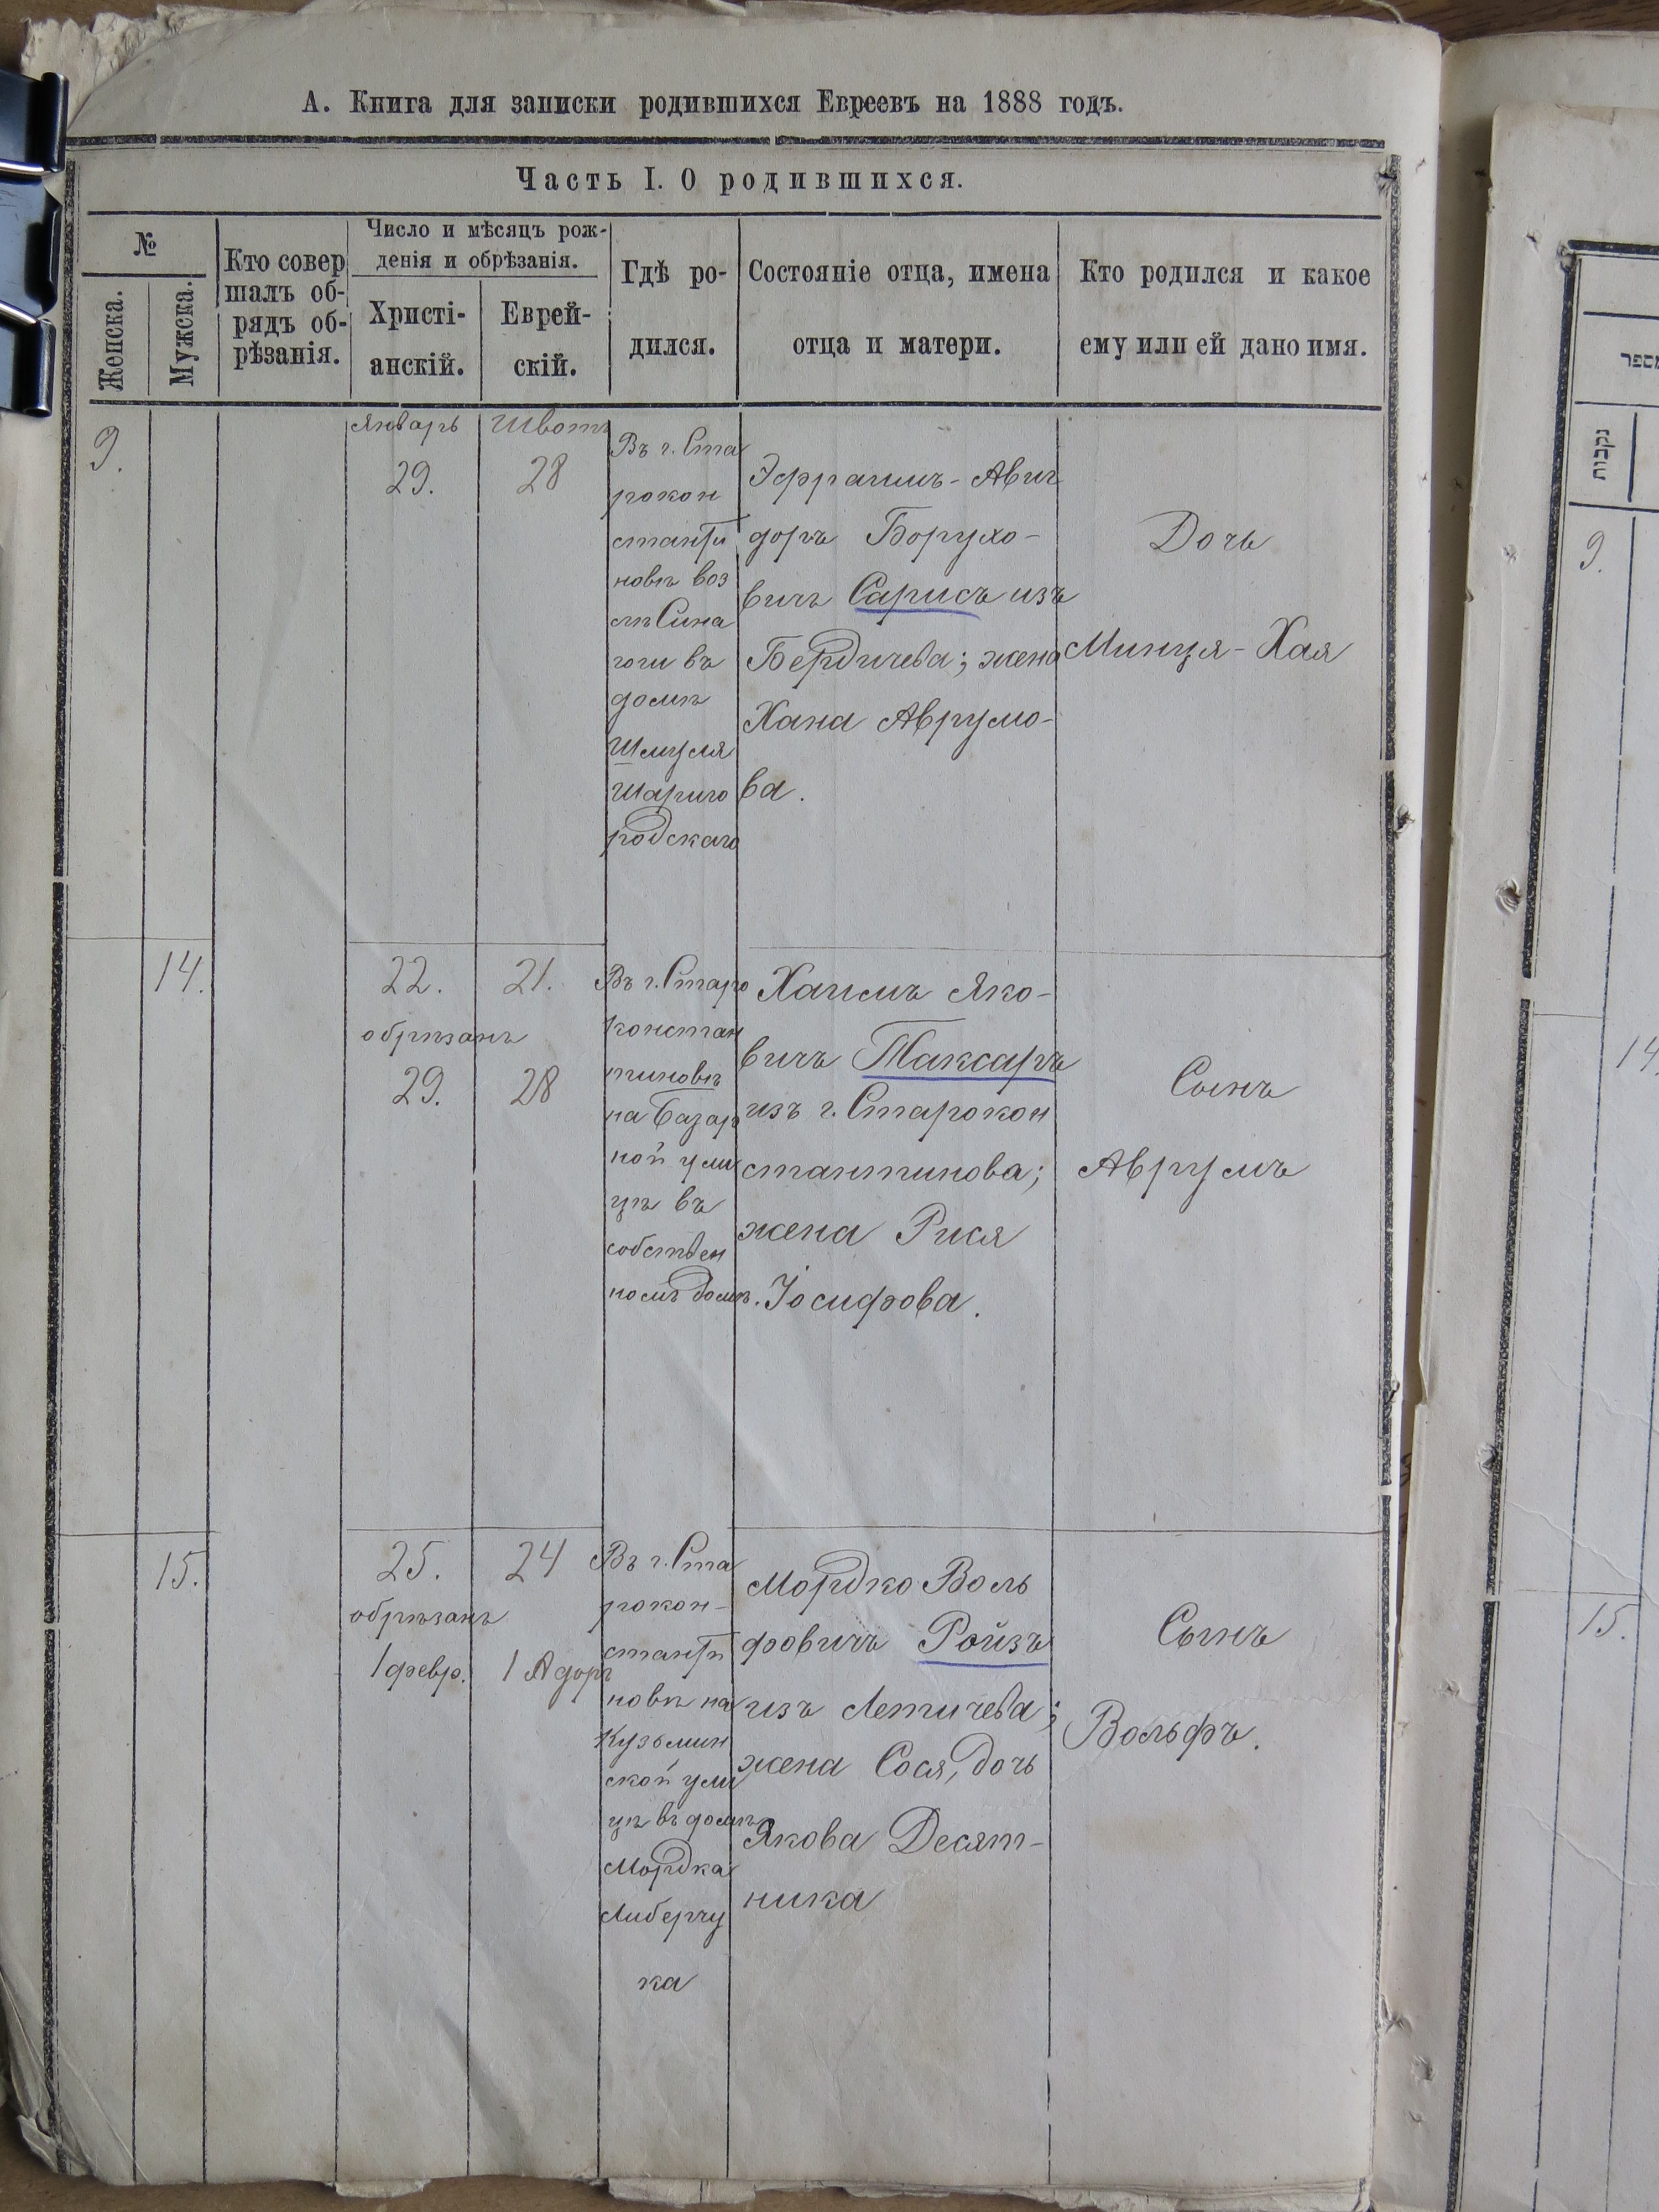 А. Книга для записки родившихся Евреевъ на 1888 годъ.
Часть I. О родившихся.
№
Женска.
Мужска.
Кто совер
шалъ об-
рядъ об-
рѣзанія.
Число и мѣсяцъ рож-
денія и обрѣзанія.
Христі-
анскій.
Еврей-
скій.
Гдѣ ро-
дился.
Состояніе отца, имена
отца и матери.
Кто родился и какое
ему или ей дано имя.
9.
Январь
29.
Швотъ
28
Въ г. Ста
рокон
станти
новѣ воз
лѣ Сина
гоги въ
домѣ
Шмуля
Шариго
родскаго
Эфраимъ-Авиг
доръ Борухо-
вичъ Сарисъ изъ
Бердичева; жена
Хана Аврумо-
ва.
Дочь
Минця-Хая
14.
22.
обрѣзанъ
29.
21.
28
Въ г. Старо
констан
тиновѣ
на Базар
ной ули
цѣ въ
собствен
номъ домѣ.
Хаимъ Яко-
вичъ Таксаръ
изъ г. Старокон
стантинова;
жена Рися
Іосифова.
Сынъ
Аврумъ
15.
25.
обрѣзанъ
1 февр.
24
1 Адоръ
Въ г. Ста
рокон-
станти
новѣ на
Кузьмин
ской ули
цѣ въ домѣ
Мордка
Либерчу
ка
Мордко Воль
фовичъ Ройзъ
изъ Летичева;
жена Сося, дочь
Якова Десят-
ника
Сынъ
Вольфъ.
מספר
נקבות
9.
14.
15.